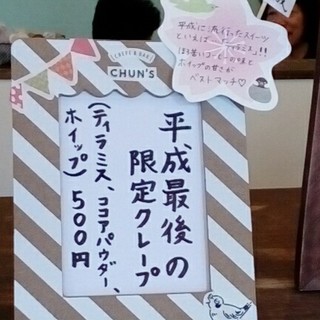 CREPE & BAR
CHUN'S
平成最後の
限定クレープ
(ティラミス、ココアパウダー、
ホイップ) 500円
平成に流行ったスイーツ
といえばティラミス!!
ほろ苦いコーヒーの味と
ホイップの甘さが
ベストマッチ♡